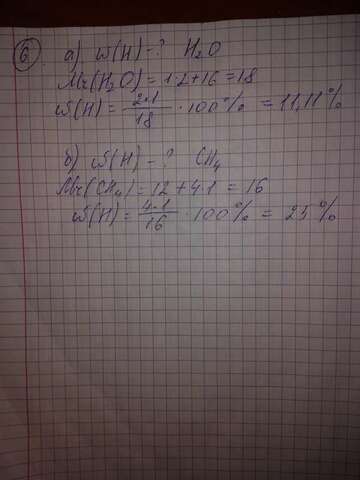 6. а) W(H) - ? H₂O
Mr(H₂O) = 1·2+16 = 18
W(H) = 2·1/18 · 100% = 11,11%
б) W(H) - ? CH₄
Mr(CH₄) = 12 + 4·1 = 16
W(H) = 4·1/16 · 100% = 25%